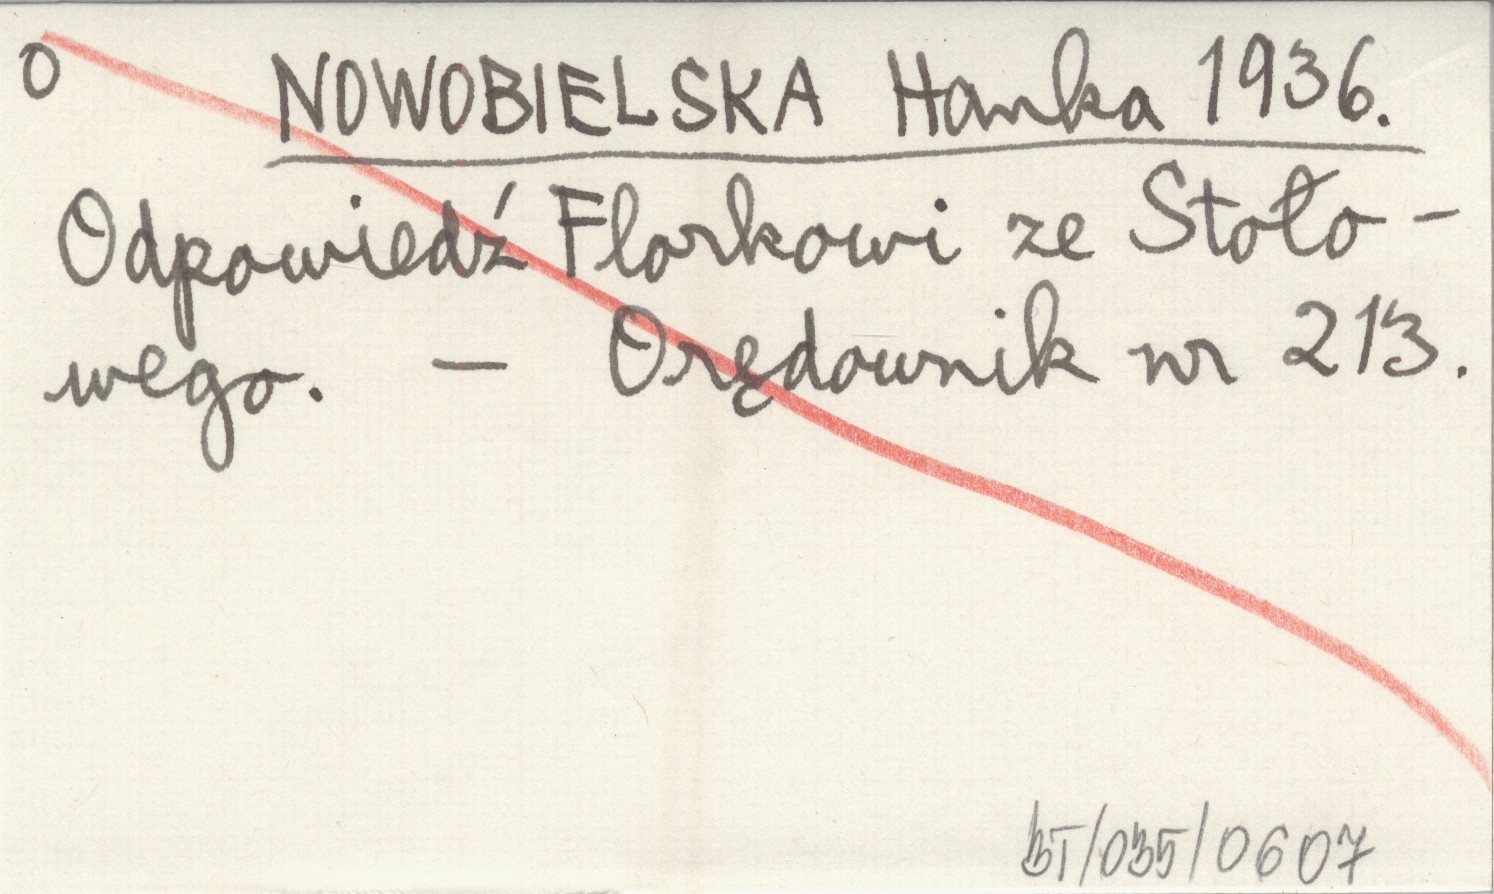 O NOWOBIELSKA Hanka 1936.
Odpowiedź Florkowi ze Stoło-
wego. — Orędownik nr 213.
BT/035/0607